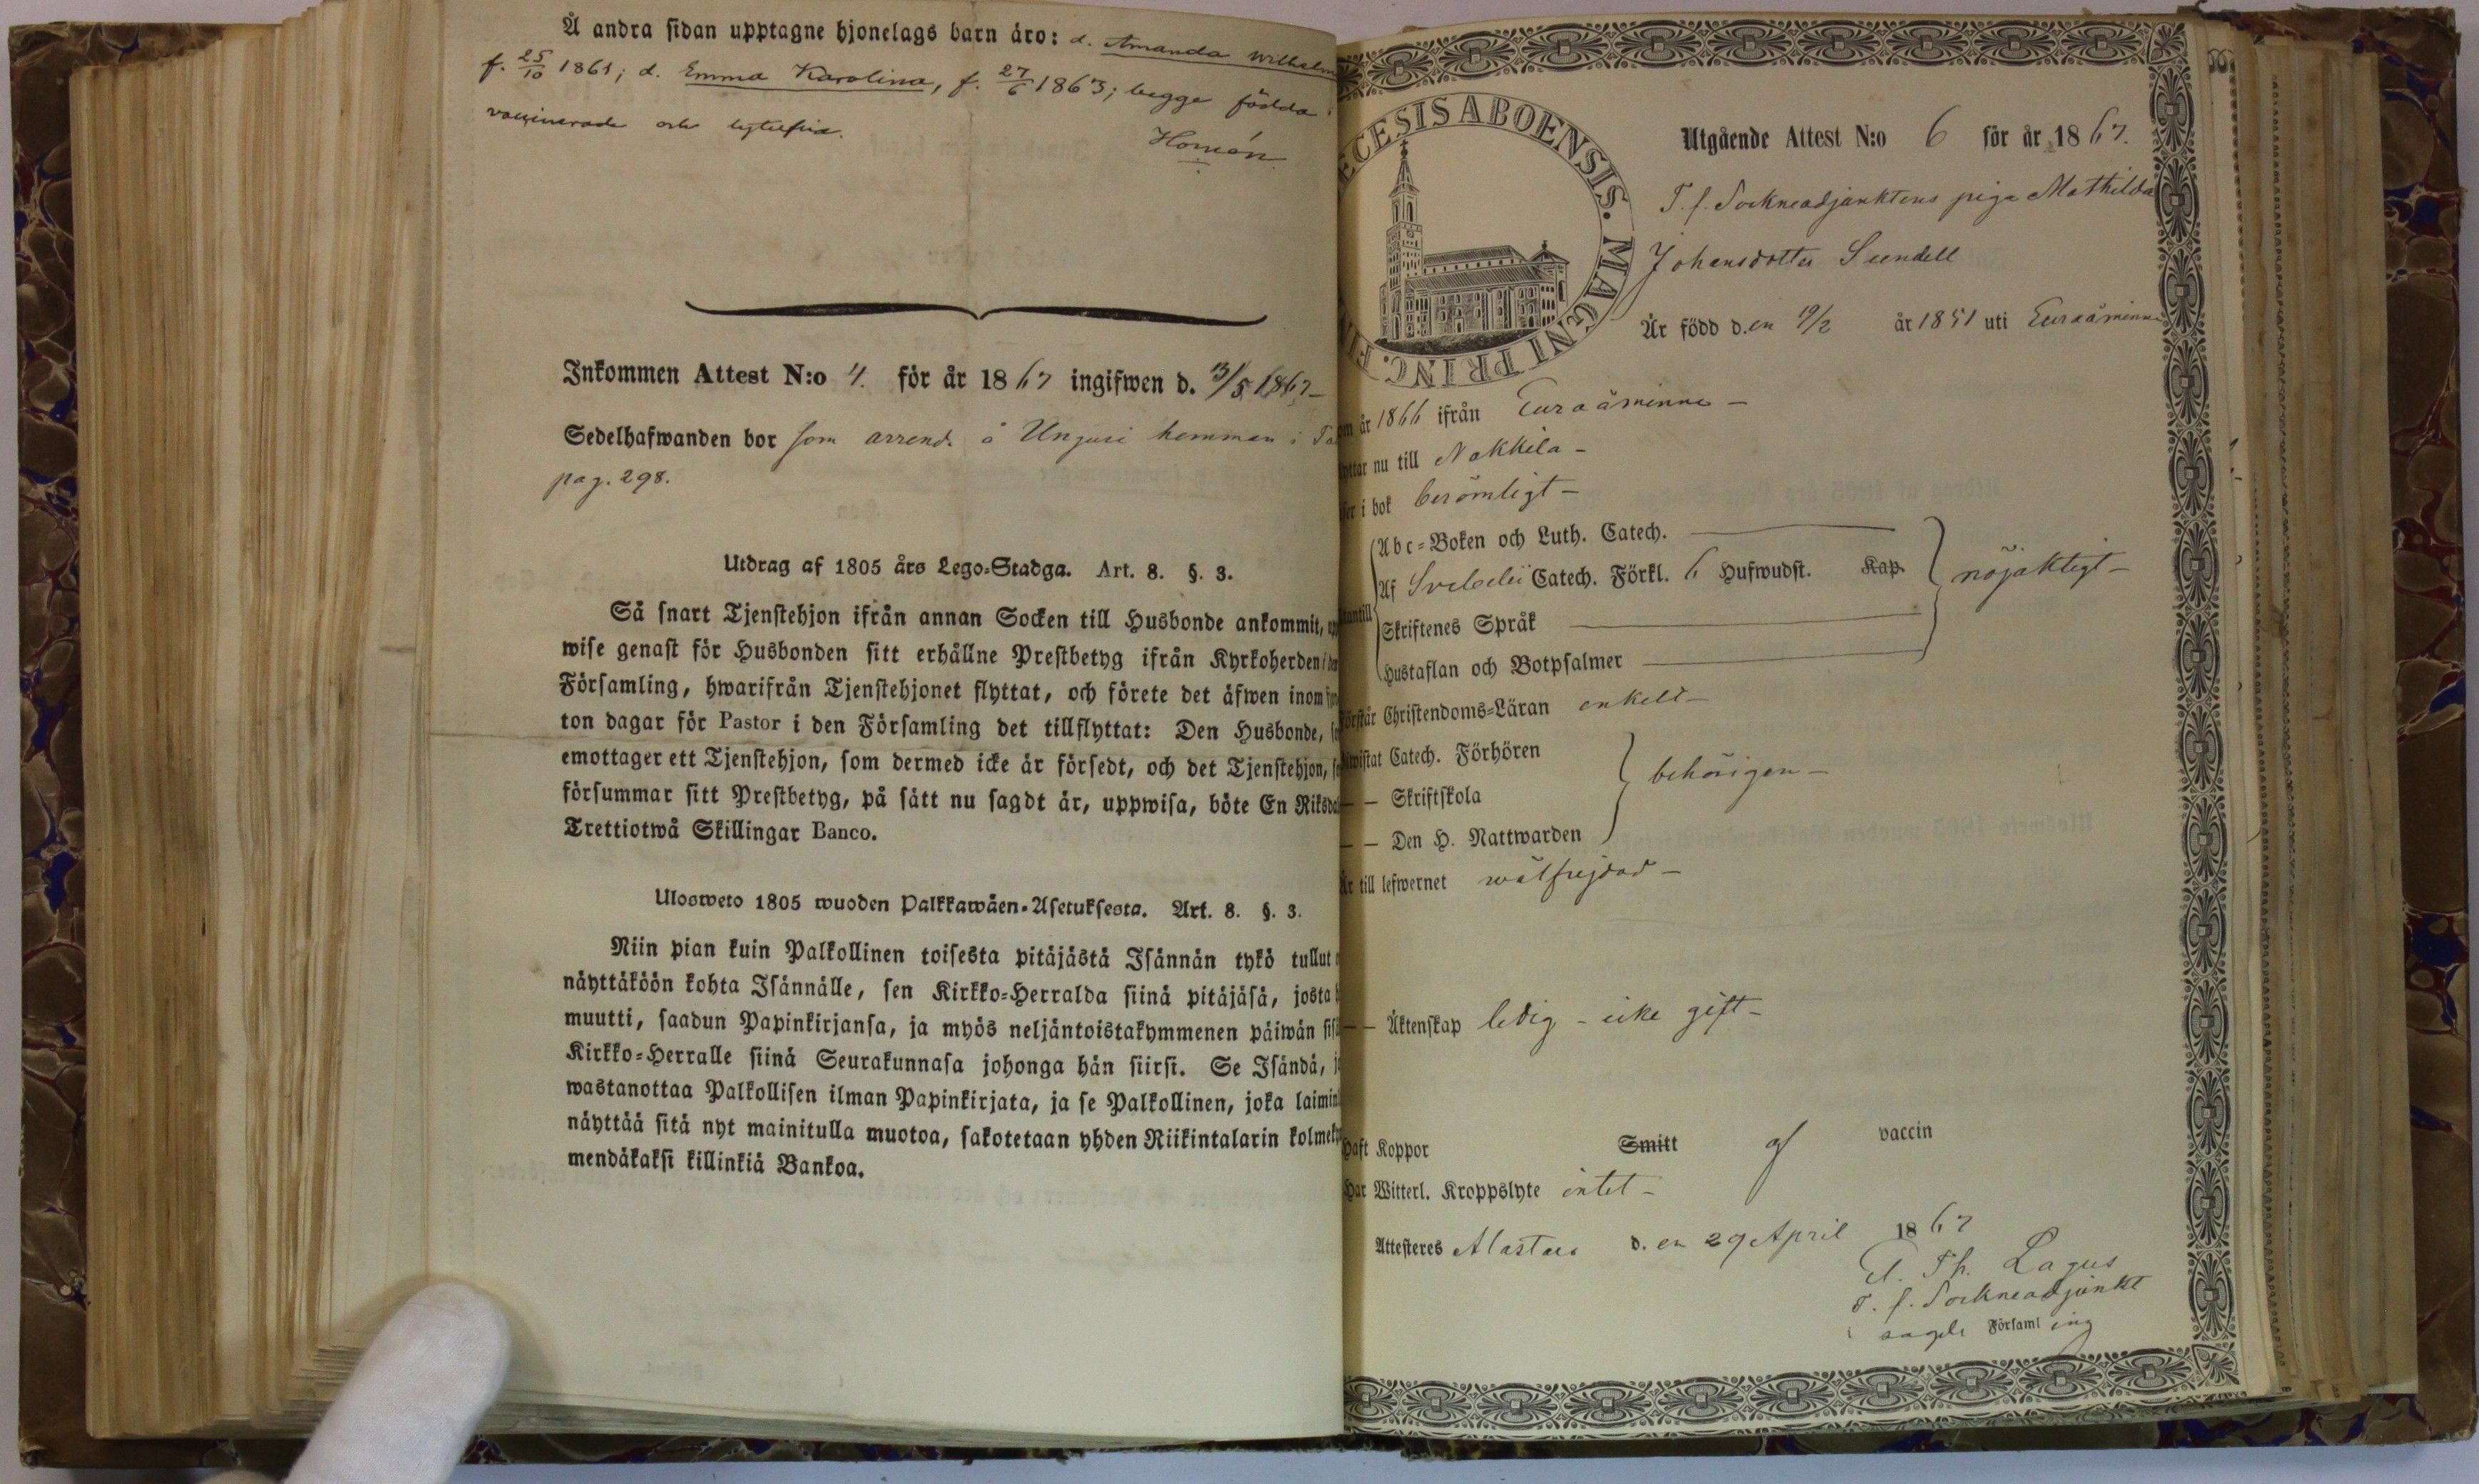 Å andra sidan upptagne hjonelags barn äro: d. Amanda Wilhelm
f. 25/10 1861; d. Emma Karolina, f. 27/6 1863; begge födda
vaccinerade och lytesfria.
Homén
Inkommen Attest N:o 4. för år 1867 ingifwen d. 13/5 1867
Sedelhafwanden bor som arrend. å Ungusi hemman i
pag. 298.
Utdrag af 1805 års Lego-Stadga. Art. 8. §. 3.
Så snart Tjenstehjon ifrån annan Socken till Husbonde ankommit,
wise genast för Husbonden sitt erhållne Prestbetyg ifrån Kyrkoherden
Församling, hwarifrån Tjenstehjonet flyttat, och förete det äfwen inom
ton dagar för Pastor i den Församling det tillflyttat: Den Husbonde,
emottager ett Tjenstehjon, som dermed icke är försedt, och det Tjenstehjon,
försummar sitt Prestbetyg, på sätt nu sagdt är, uppwisa, böte En Riksda
Trettiotwå Skillingar Banco.
Ulosweto 1805 wuoden Palkkawäen-Asetuksesta. Art. 8. §. 3.
Niin pian kuin Palkollinen toisesta pitäjästä Isännän tykö tullut
näyttäköön kohta Isännälle, sen Kirkko-Herralda siinä pitäjäsä, josta
muutti, saadun Papinkirjansa, ja myös neljäntoistakymmenen päiwän
Kirkko-Herralle siinä Seurakunnasa johonga hän siirsi. Se Isändä,
wastanottaa Palkollisen ilman Papinkirjata, ja se Palkollinen, joka laimin
näyttää sitä nyt mainitulla muotoa, sakotetaan yhden Riikintalarin kolme
mendäkaksi killinkiä Bankoa.
ECESIS ABOENSIS. MAGNI PRINC. FI
Utgående Attest N:o 6 för år 1867.
T. f. Sockneadjunktens piga Mathilda
Johansdotter Sundell
Är född d.en 19/2 år 1851 uti Euraåminne
år 1866 ifrån Euraåminne –
nu till Nakkila –
i bok berömligt –
Abc-Boken och Luth. Catech.
Af Svebelii Catech. Förkl. 6 Hufwudst. Kap. nöjaktigt –
Skriftenes Språk
Hustaflan och Botpsalmer
Förstår Christendoms-Läran enkelt –
Catech. Förhören
– – Skriftskola behörigen –
– – Den H. Nattwarden
Är till lefwernet wälfrejdad –
– – Äktenskap ledig – icke gift –
Haft Koppor Smitt af vaccin
Har Witterl. Kroppslyte intet –
Attesteres Alastaro d. en 29 April 1867
Th. Lagus
T. f. Sockneadjunkt
Församling